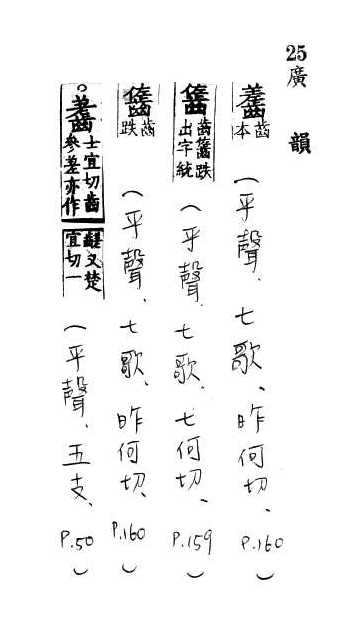 25 廣韻
齹 齒本（平聲、七歌、昨何切、P.160）
齒跌出字統（平聲、七歌、七何切、P.159）
齒跌（平聲、七歌、昨何切、P.160）
。齹 士宜切齒參差亦作又楚宜切一（平聲、五支、P.50）